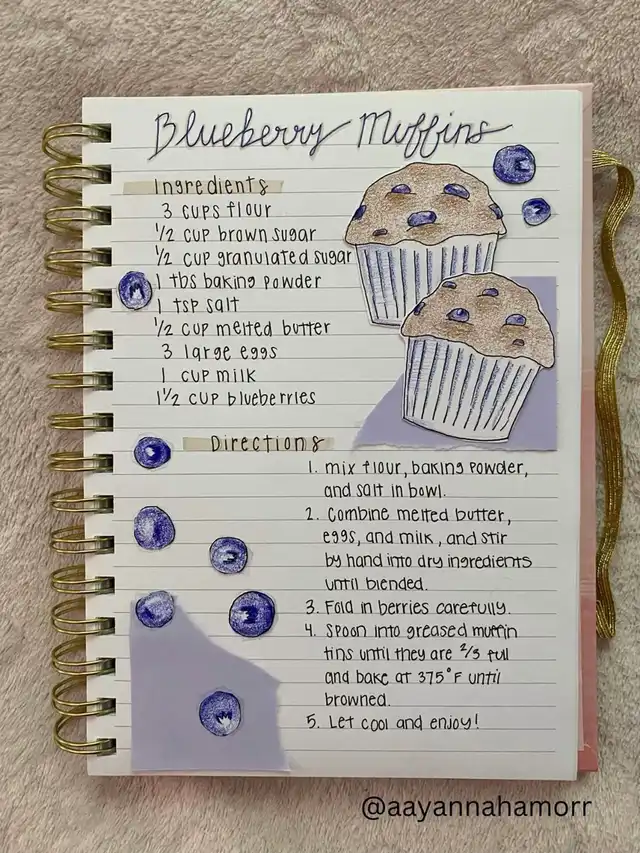 Blueberry Muffins
Ingredients
3 cups flour
1/2 cup brown sugar
1/2 cup granulated sugar
1 tbs baking powder
1 tsp salt
1/2 cup melted butter
3 large eggs
1 cup milk
1 1/2 cup blueberries
Directions
1. mix flour, baking powder,
and salt in bowl.
2. Combine melted butter,
eggs, and milk, and stir
by hand into dry ingredients
until blended.
3. Fold in berries carefully.
4. Spoon into greased muffin
tins until they are 2/3 full
and bake at 375°F until
browned.
5. Let cool and enjoy!
@aayannahamorr